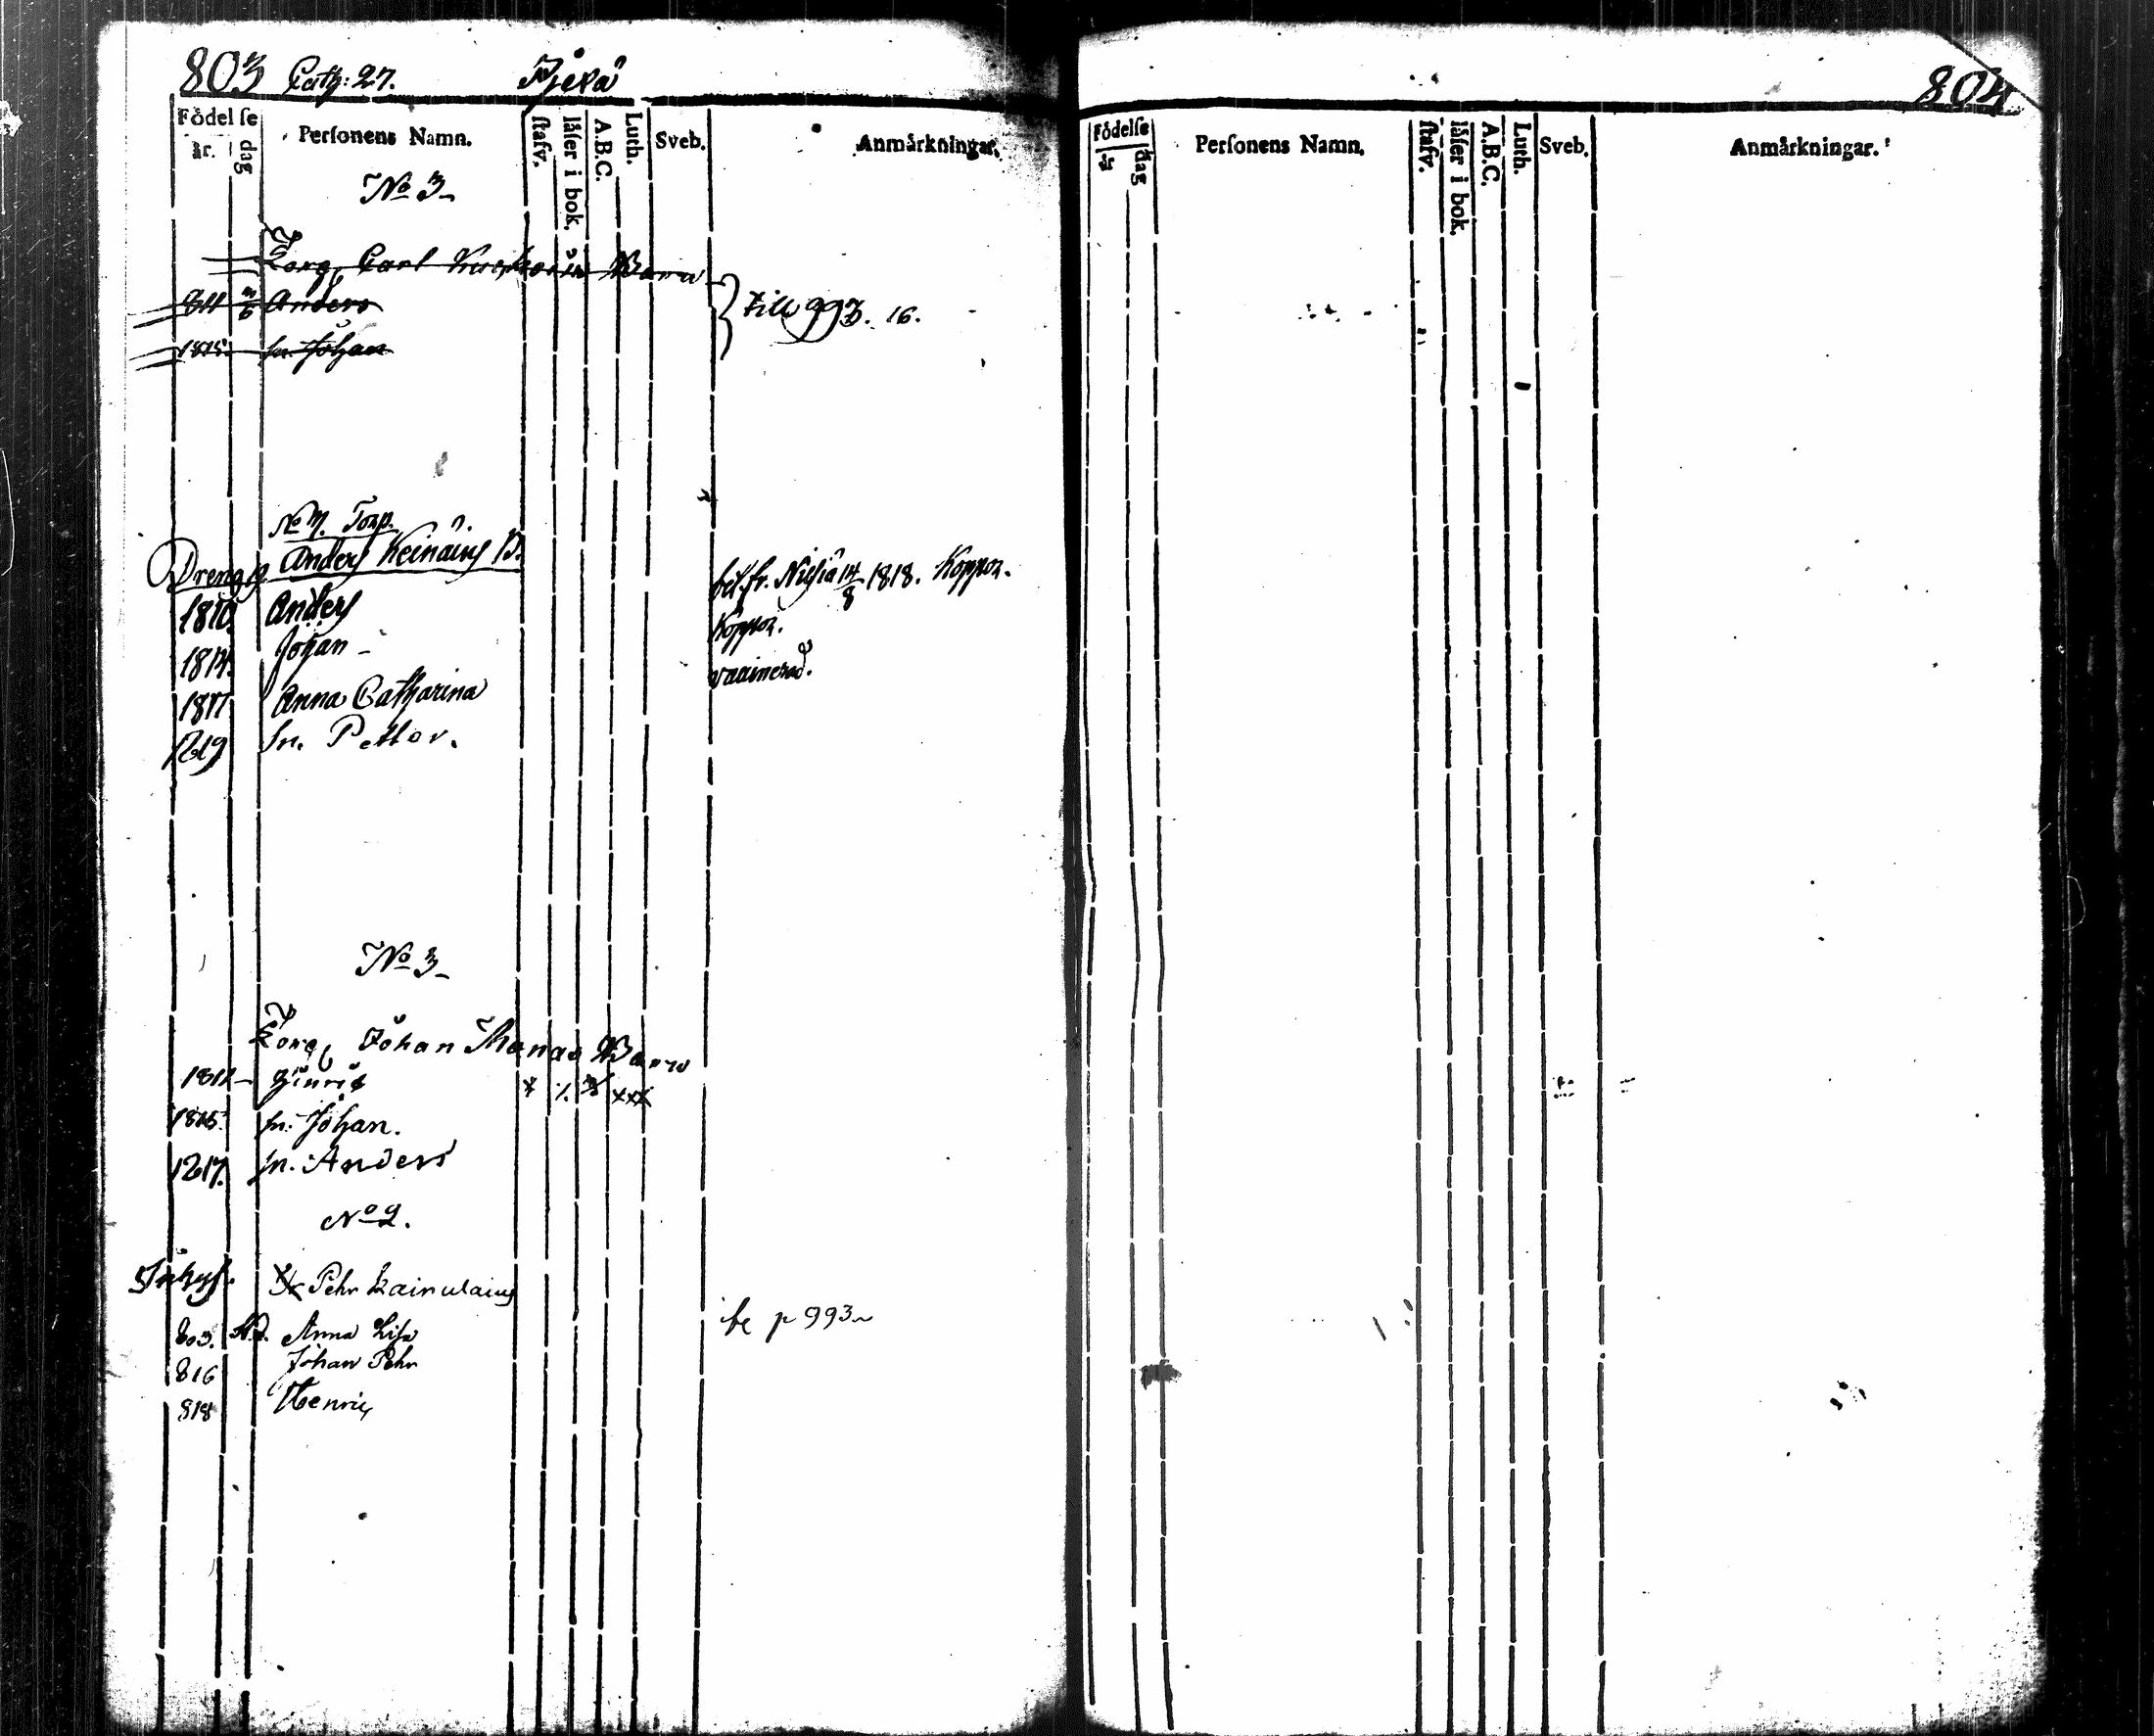 803 Cath: 27. Pjexä
Födelſe
år. dag Perſonens Namn. ſtafv. låſer i bok. A.B.C. Luth. Sveb. Anmårkningar.
No 3
Torp. Carl Barn
811 Anders till 993. 16.
1815. sn. Johan
No 7. Torp.
Dreng Anders Keinäin B. bet. fr. Nilsiä 14/8 1818. Koppor.
1810. Anders Koppor.
1814. Johan vaccinerad.
1817 Anna Catharina
1819 sn. Petter.
No 3
Torp. Johan Barn
1812 Hinric x ⁒ xxx
1815. sn. Johan.
1817. sn. Anders
No 2.
Inhys. Pehr Kainulain
803. Anna Lisa se p 993
816 Johan Pehr
818 Henric
804
Födelſe
år dag Perſonens Namn. ſtafv. låſer i bok. A.B.C. Luth. Sveb. Anmårkningar.